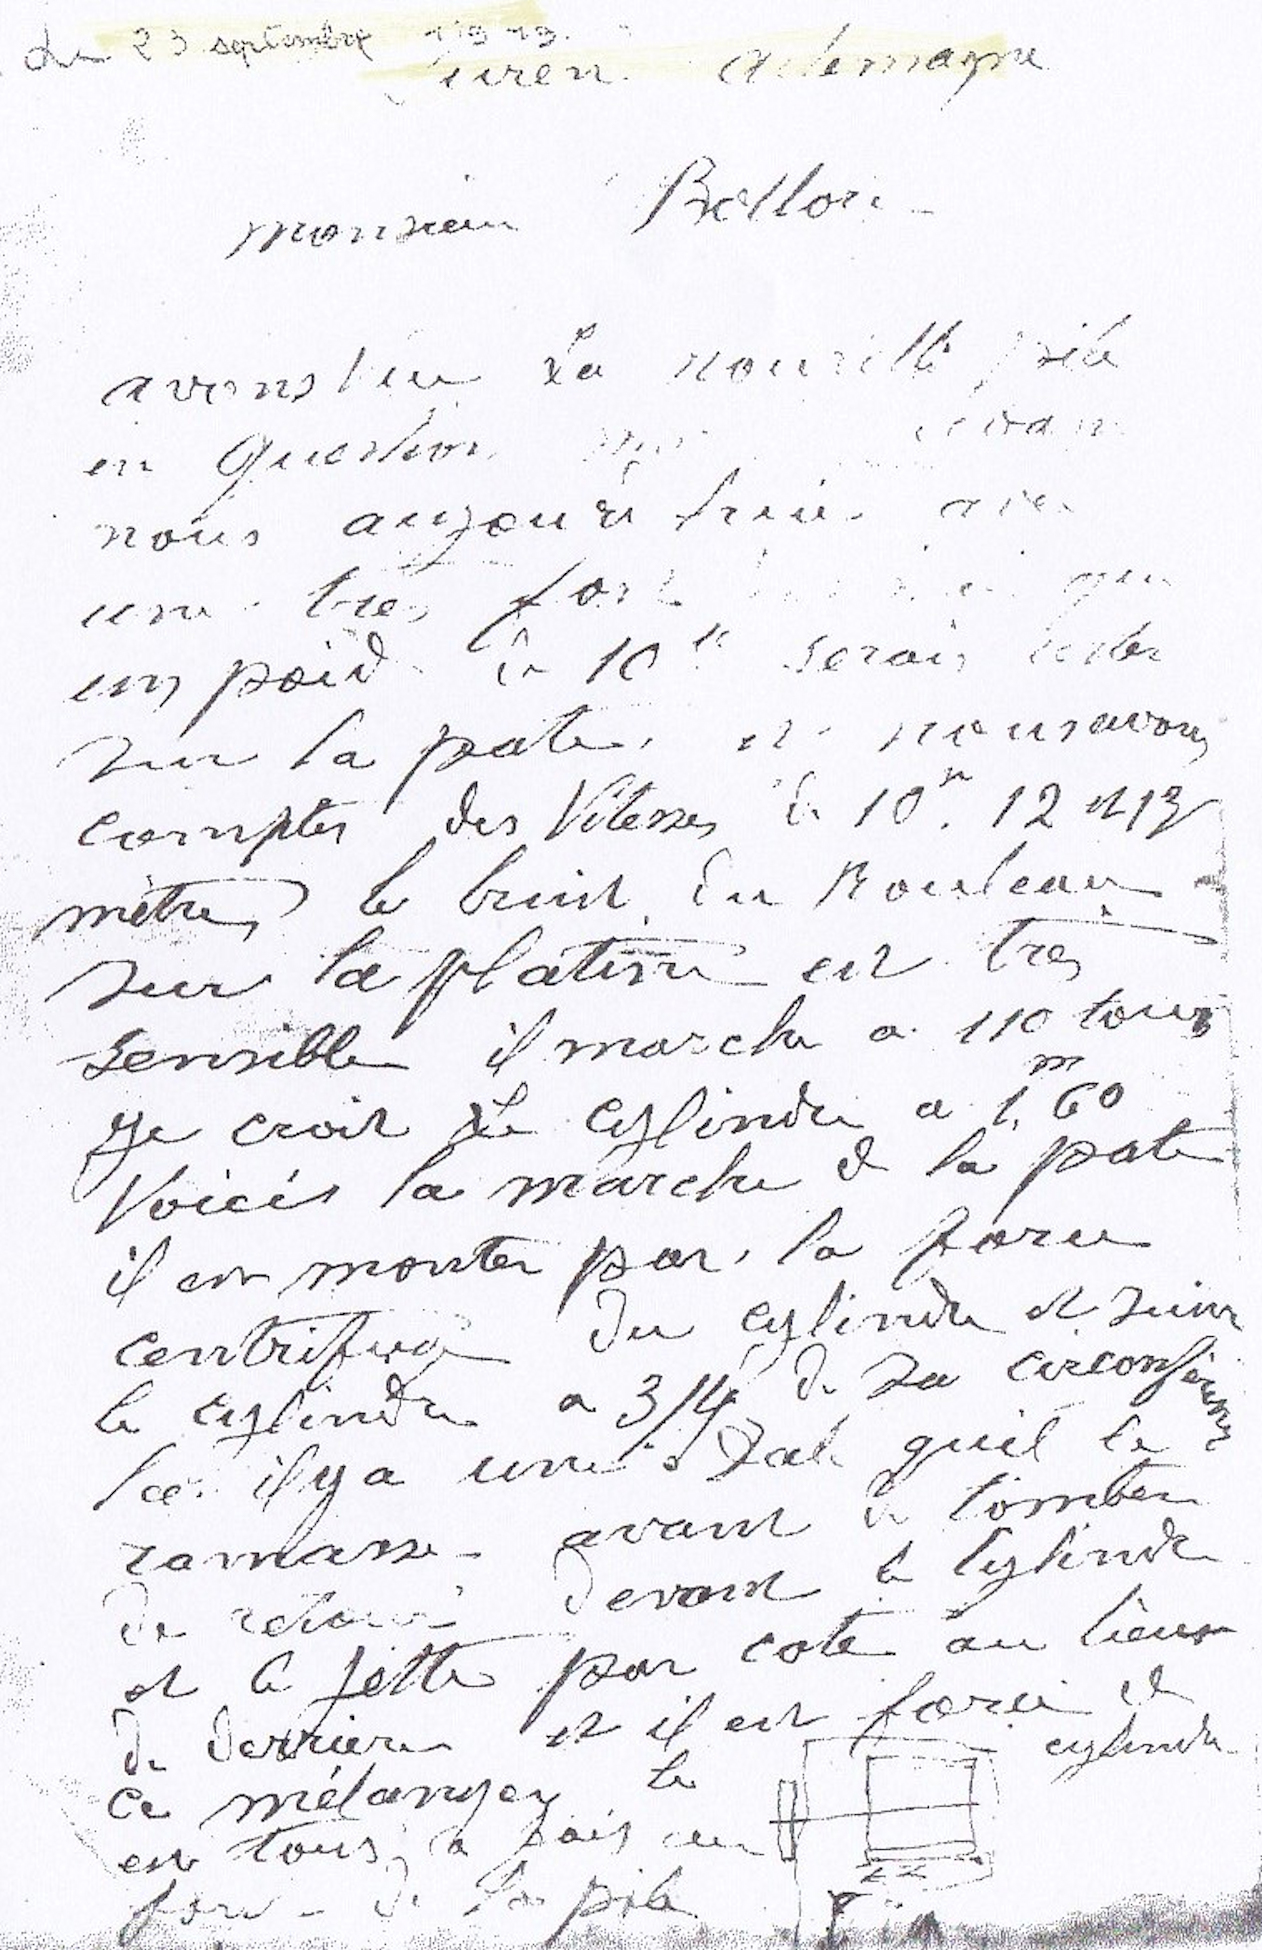 Le 23 septembre 1919.
uren Allemagne
Monsieur Bellon
avons vu La nouvelle pile
en question
nous aujourd huis avec
une tres fort que
un poid de 10 k serais
sur la pate, et nous avons
comptes des Vitesses de 10 m. 12 et 13
mètres le bruit du Rouleau
sur la platine est tres
sensible il marche a 110 tours
je croit Le cylindre a 1, m 60
Voicis la marche de la pate
il est monter par la force
centrifuge du cylindre et suive
le cylindre a 3/4 de sa circonférence
la il y a une quil le
ramasse avant de tomber
de retour devant le Cylindre
et le jette par cote au lieux
de derriere et il est forcé de
ce mélanger le cylindre
est tous a fais au
fond de la pile